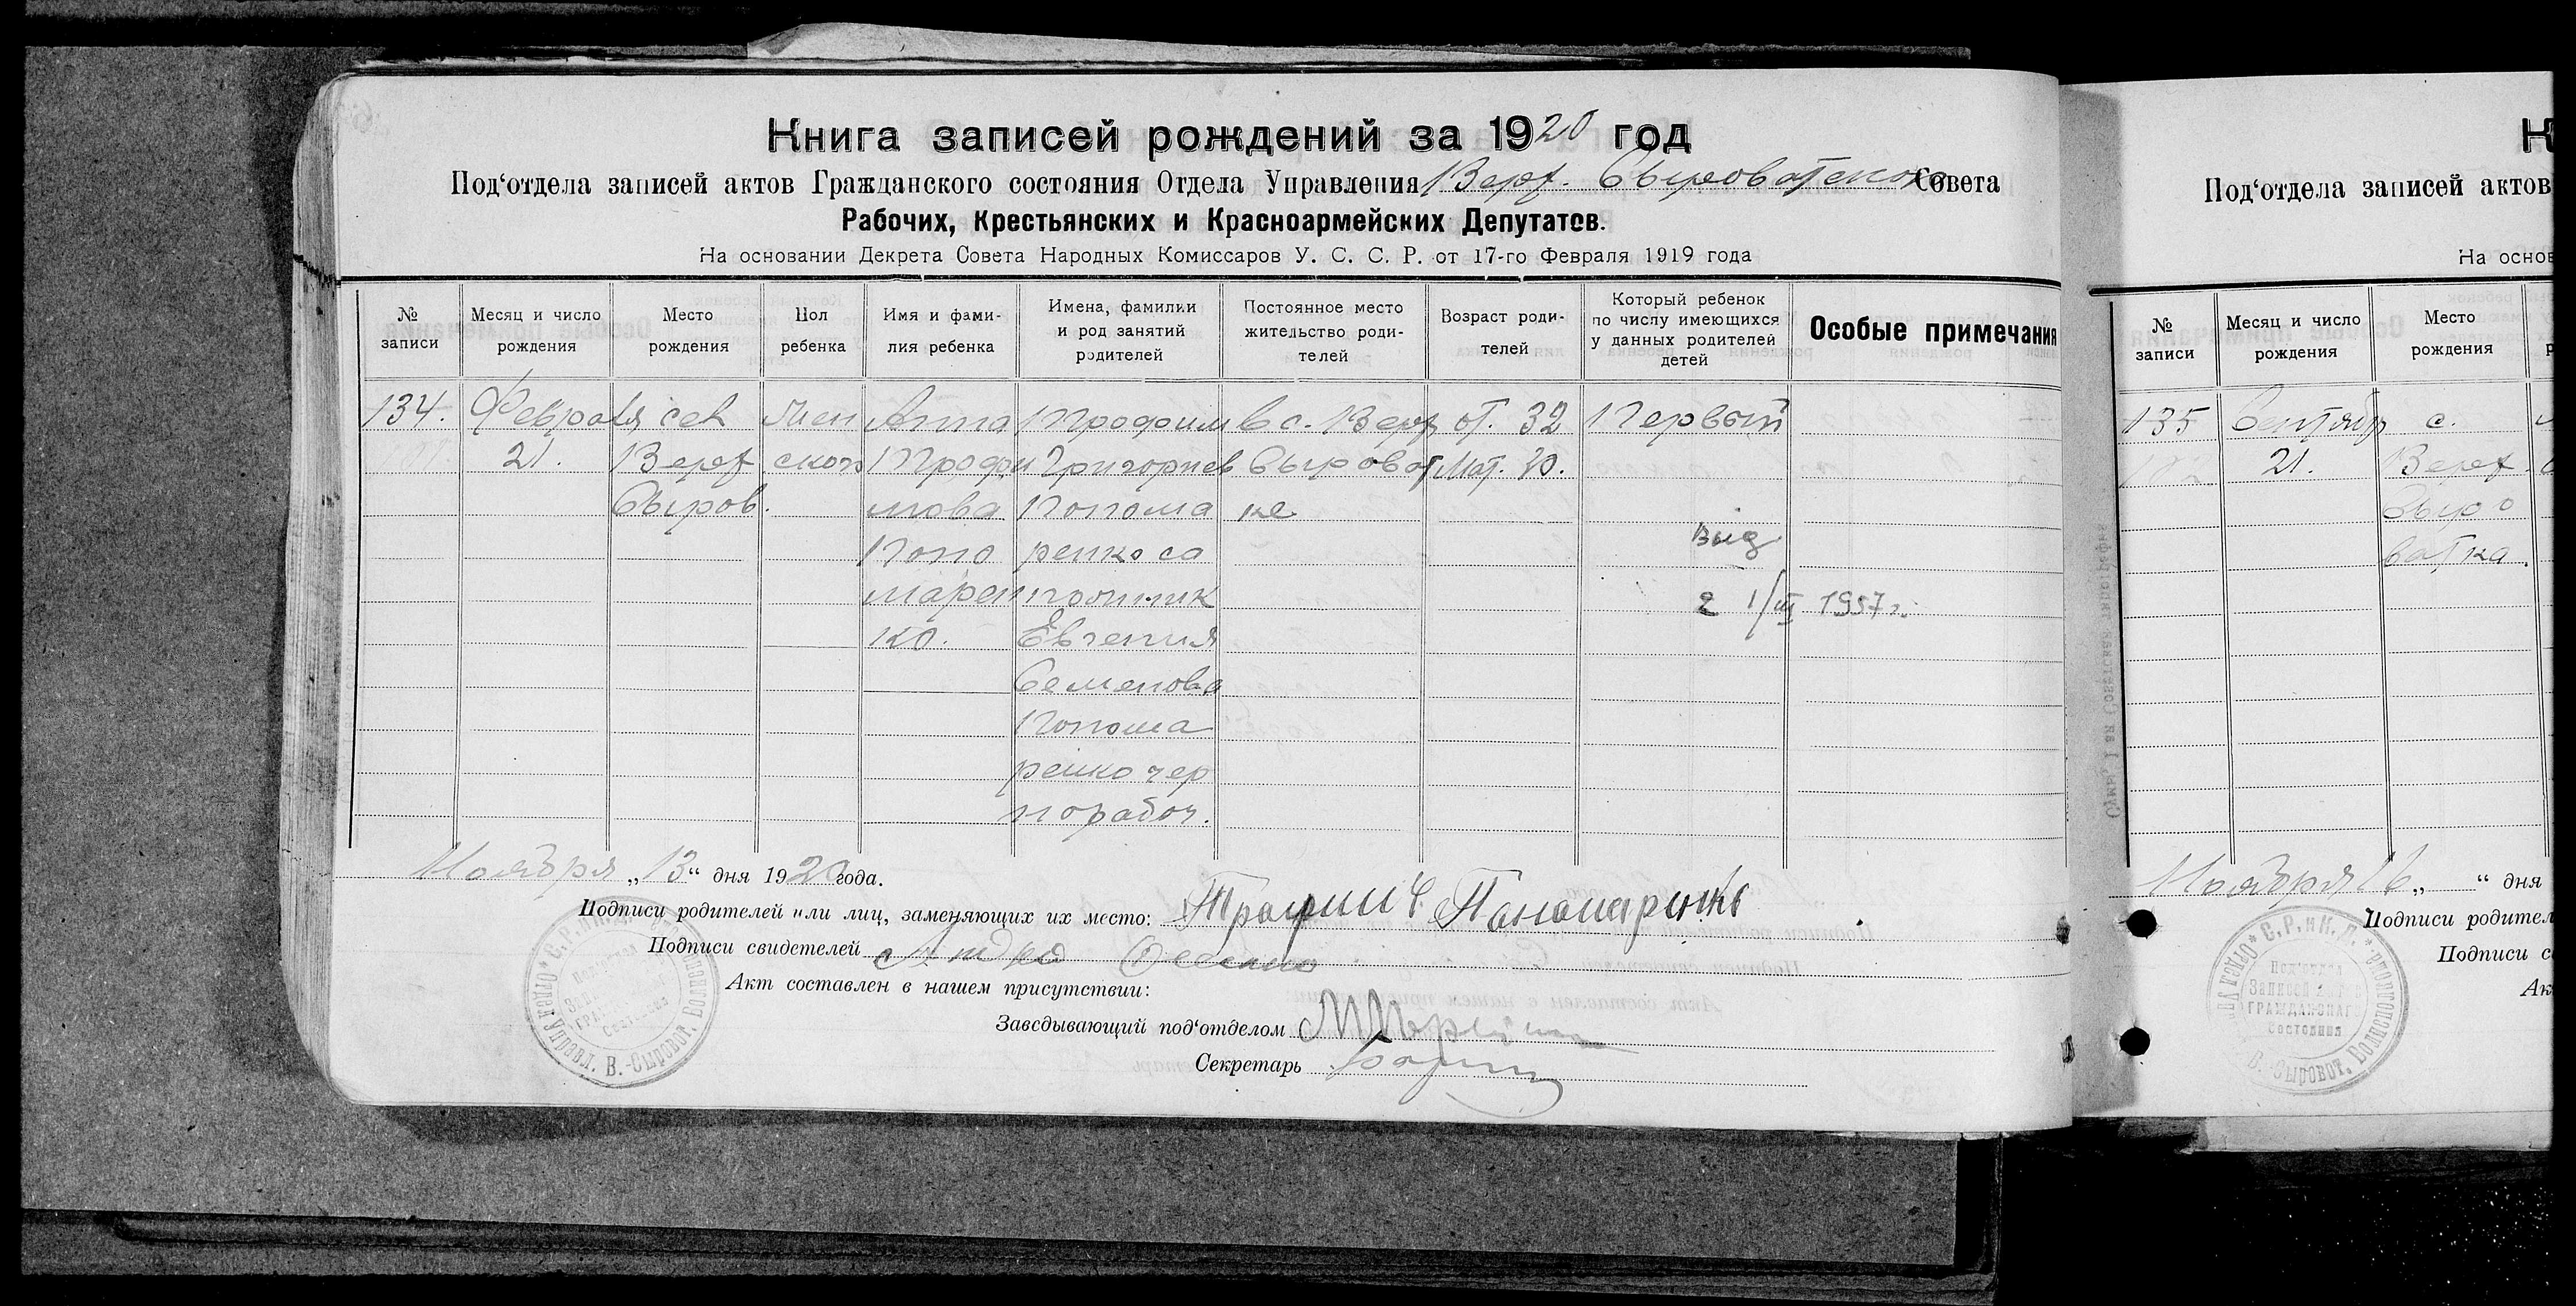 Книга записей рождений за 1920 год
Под‘отдела записей актов Гражданского состояния Отдела Управления Верх. Сыроватского Совета
Рабочих, Крестьянских и Красноармейских Депутатов.
На основании Декрета Совета Народных Комиссаров У. С. С. Р. от 17-го Февраля 1919 года
№ записи
Месяц и число рождения
Место рождения
Пол ребенка
Имя и фами-
лия ребенка
Имена, фамилии
и род занятий
родителей
Постоянное место
жительство роди-
телей
Возраст роди-
телей
Который ребенок
по числу имеющихся
у данных родителей
детей
Особые примечания
134.
Февраля
21.
сел
Верх
Сыров.
Жен
ского
Анна
Трофи
мова
Поно
марен
ко.
Трофим
Григориев
Понома
ренко са
пожник
Евгения
Семенова
Понома
ренко чер
норабоч.
в с. Верх
Сыроват
ке
от. 32
Мат. 20.
Первый
Вид
2 1/III 1957 г.
Ноября „13“ дня 1920 года.
Подписи родителей или лиц, заменяющих их место: Трофим Г Пономаренко
Подписи свидетелей
Акт составлен в нашем присутствии:
Заведывающий под‘отделом
Секретарь
Отдел Управл. В.-Сыроват. Волисполкома С. Р. и К. Д.
Под‘отдел
Записей
ГРАЖДАНСКАГО
Состояния
К
Под‘отдела записей актов
На основ
№ записи
Месяц и число рождения
Место рождения
135
Сентябр
21.
с.
Верх.
Сыро
ватка.
Ноября 16 „ “ дня
Подписи родител
Подписи с
Ак
С. Р. и К. Д.
Под‘отдел
Записей
ГРАЖДАНСКАГО
Состояния
В.-Сыроват. Волисполкома